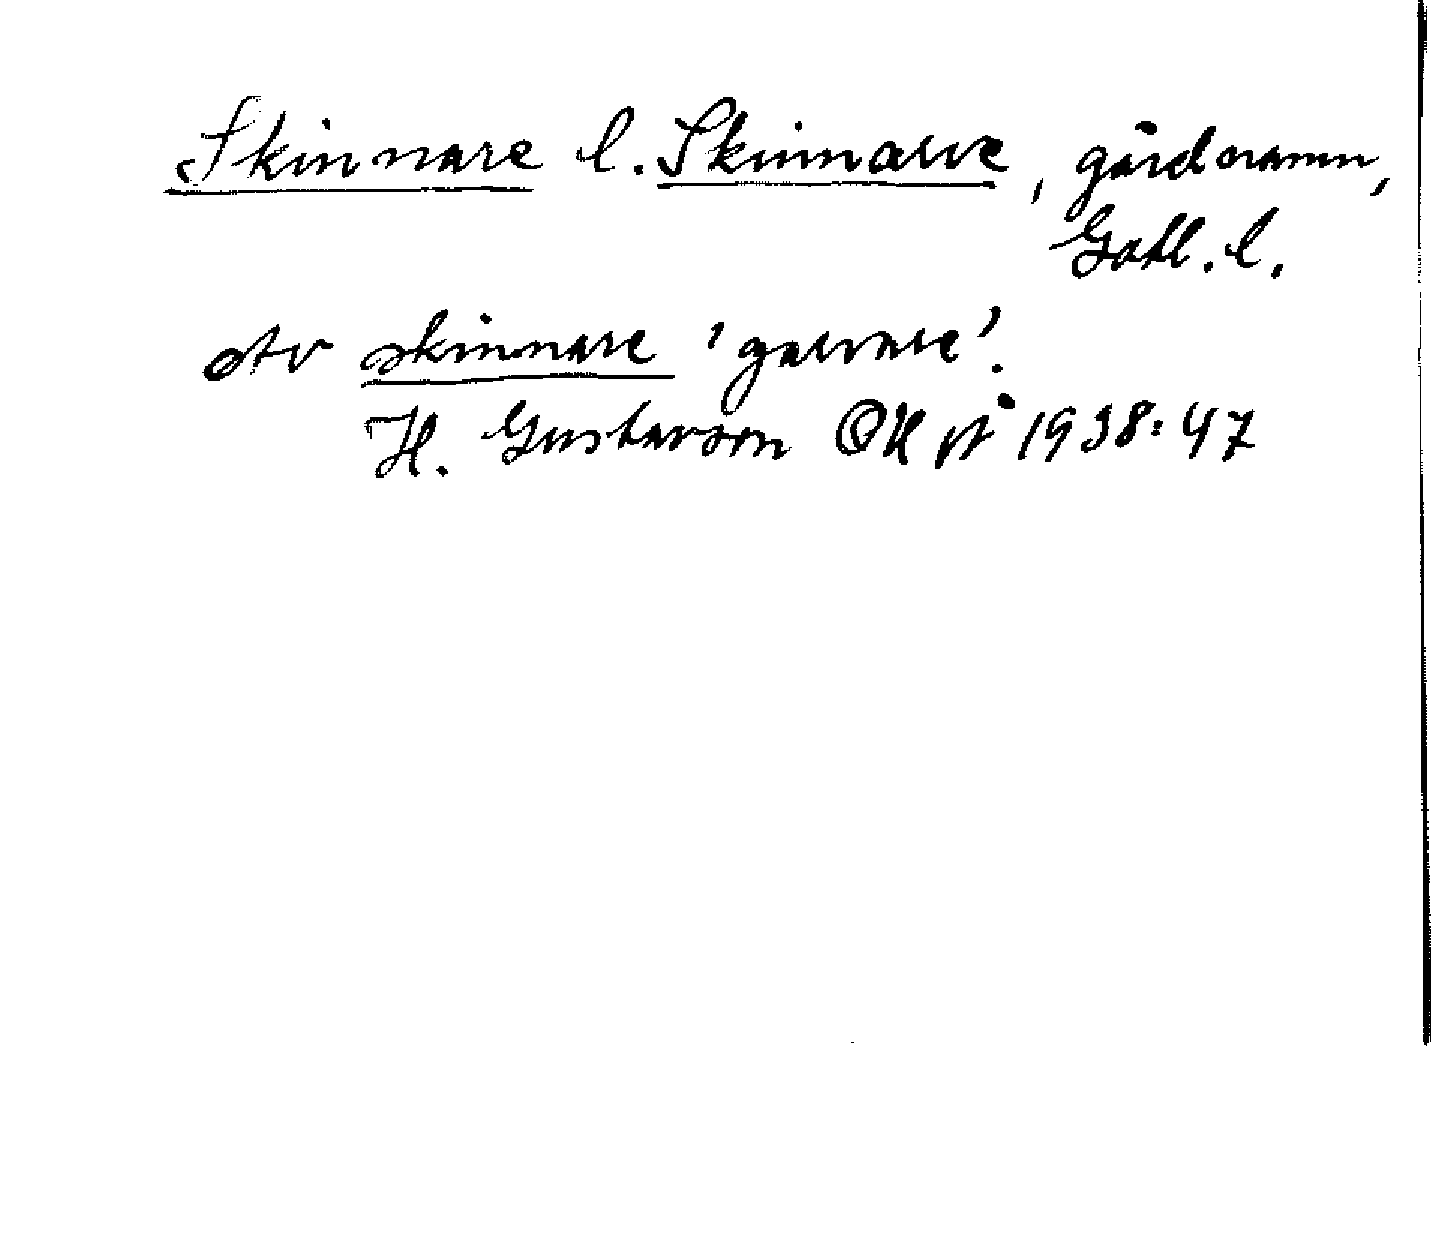 Skinnare l. Skinnarve, gårdsnamn,
Gotl. l.
Av skinnare 'garvare'.
H. Gustavson OH på 1938:47